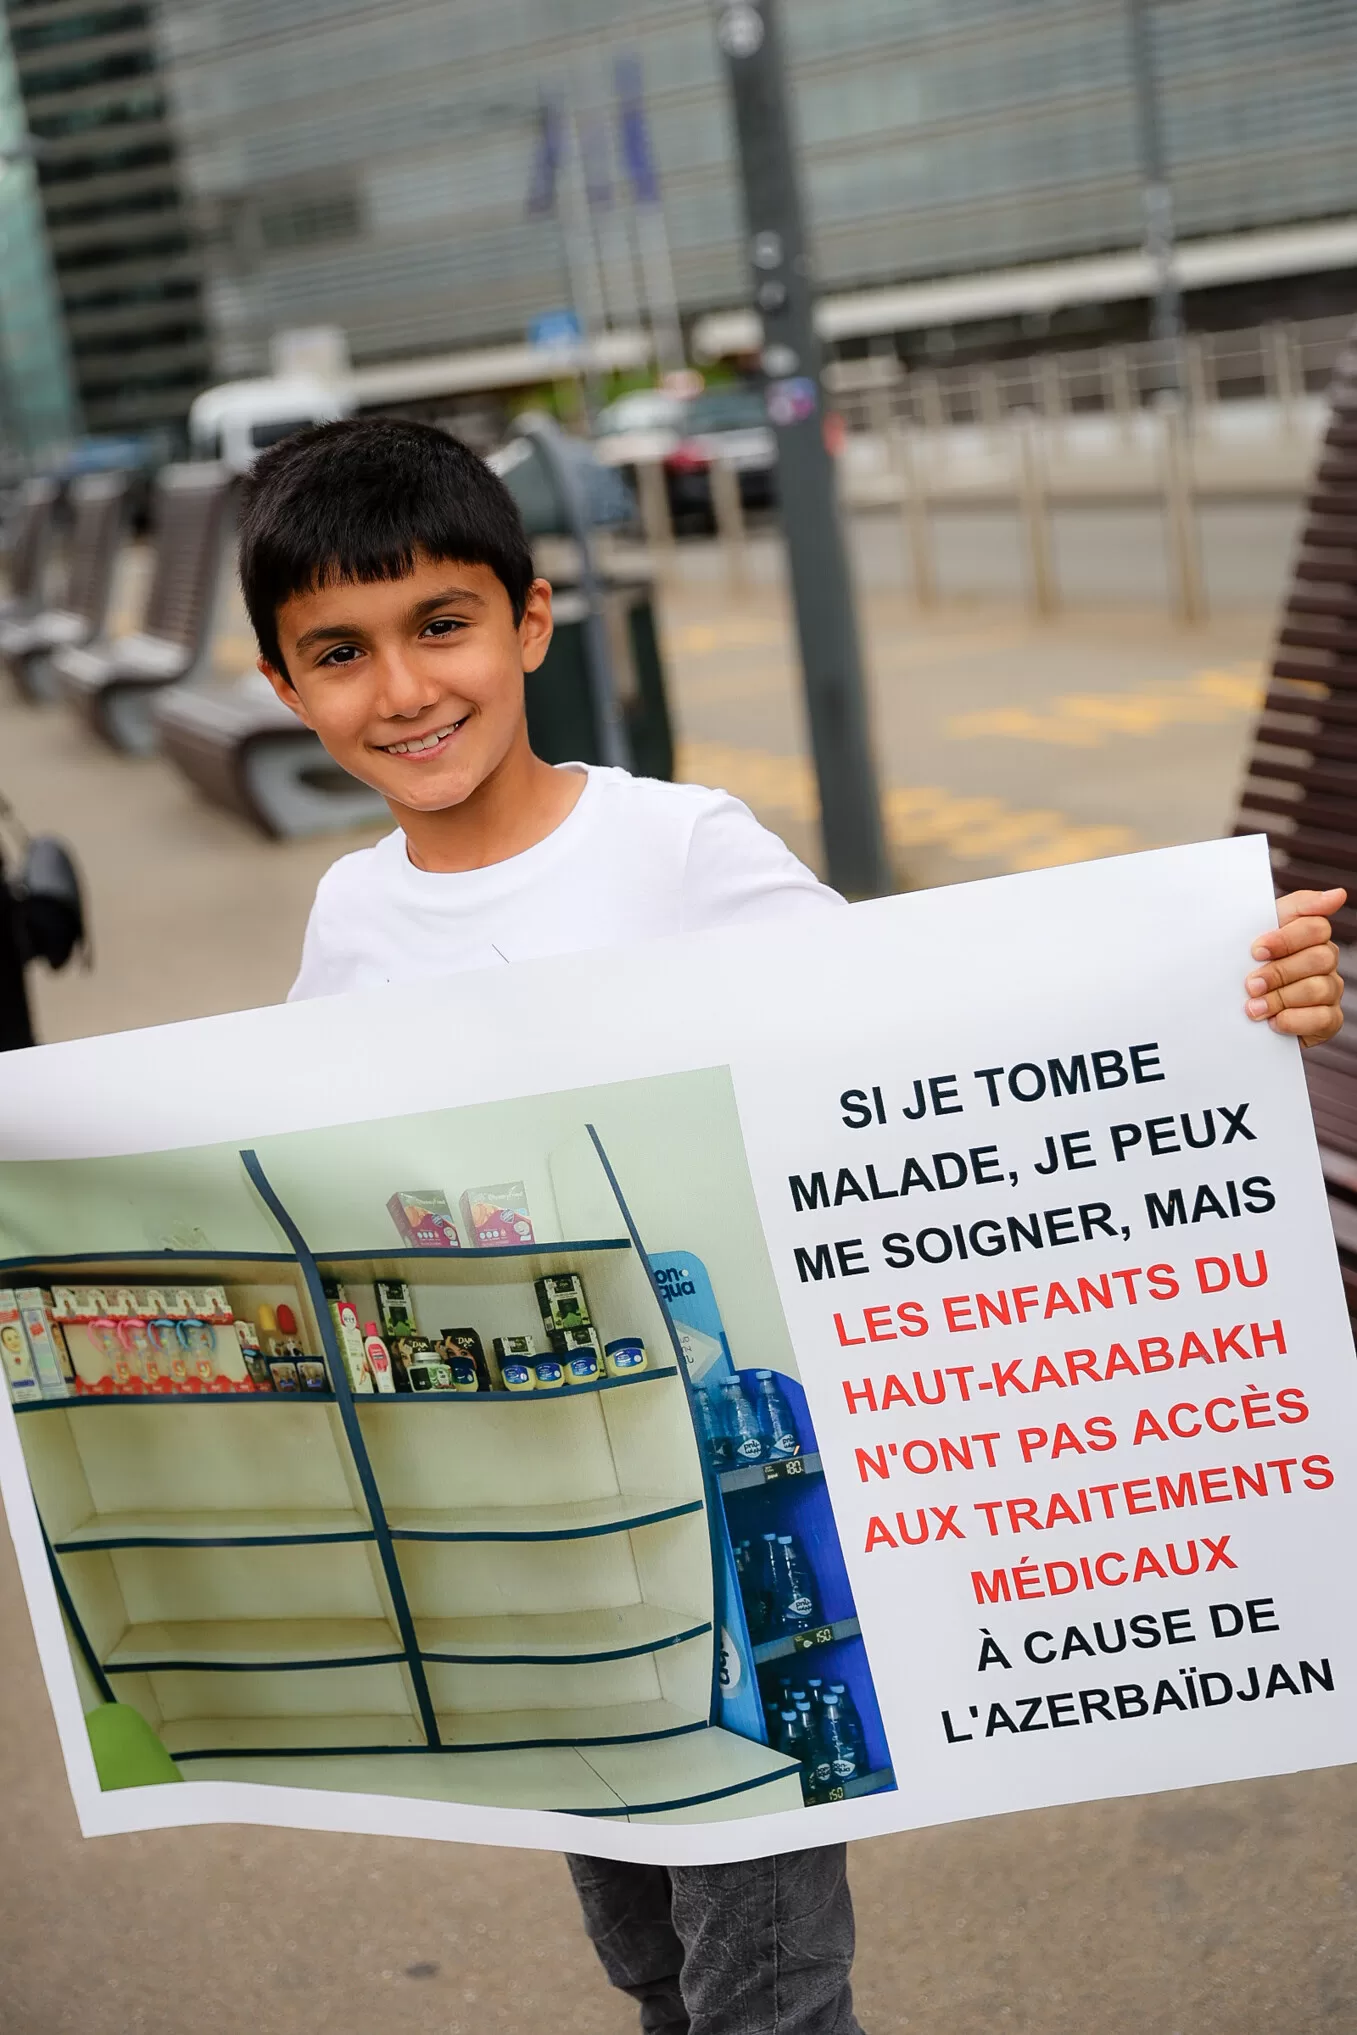 SI JE TOMBE
MALADE, JE PEUX
ME SOIGNER, MAIS
LES ENFANTS DU
HAUT-KARABAKH
N'ONT PAS ACCÈS
AUX TRAITEMENTS
MÉDICAUX
À CAUSE DE
L'AZERBAÏDJAN
on-
qua
180
150
150